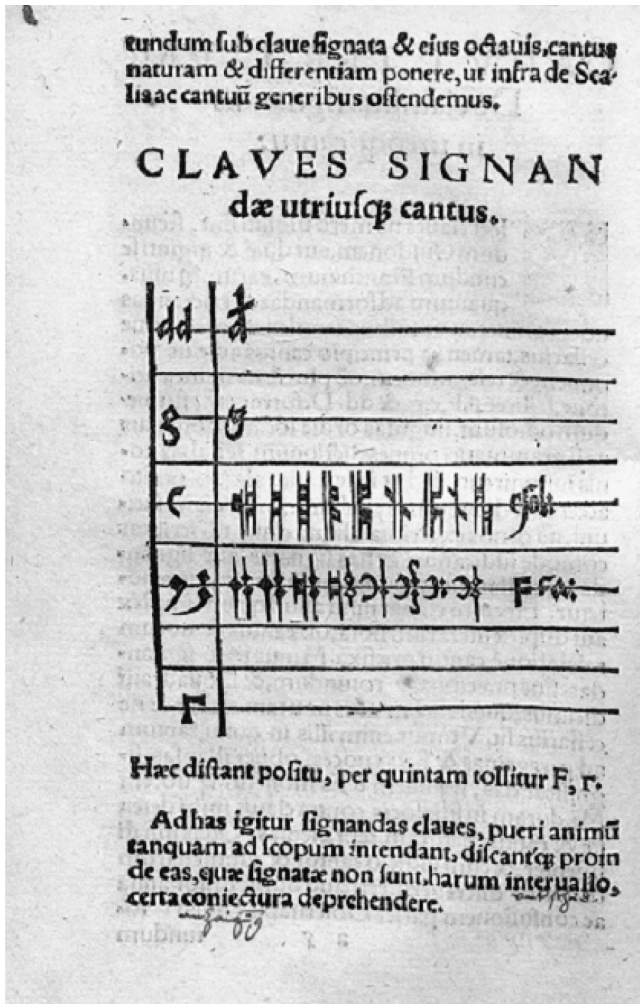 cundum sub claue signata & eius octauis, cantus
naturam & differentiam ponere, ut infra de Sca-
lis ac cantuū generibus ostendemus.
CLAVES SIGNAN
dæ utriusqꝫ cantus.
dd d
g
c
F
Γ
Hæc distant positu, per quintam tollitur F, Γ.
Ad has igitur signandas claues, pueri animū
tanquam ad scopum intendant, discantqꝫ proin
de eas, quæ signatæ non sunt, harum interuallo,
certa coniectura deprehendere.